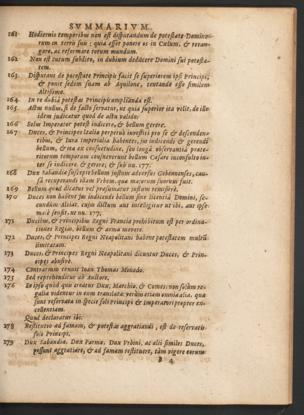 SVMMARIVM.
161 Hodiernis temporibus non est disputandum de potestate Domino-
rum in terris suis; quia esset ponere os in Cælum, & reuan-
gare, ac reformare totum mundum.
162 Non est tutum subdito, in dubium deducere Domini sui potesta-
tem.
163 Disputans de potestate Principis facit se superiorem ipsi Principi;
& ponit sedem suam ab Aquilone, tentando esse similem
Altissimo.
164 In re dubia potestas Principis amplianda est.
165 Actus nullus, si de facto seruatur, ut quia superior ita velit, de illo
idem iudicatur quod de actu valido.
166 Solus Imperator potest indicere, & bellum gerere.
167 Duces, & Principes Italiæ perpetuò inuestiti pro se & descenden-
tibus, & iura imperialia habentes, in indicendo & gerendo
bellum, & ex consuetudine, seu longa obseruantia præte-
ritorum temporum consueuerunt bellum Cæsare inconsulto in-
ter se indicere, & gerere, & sub nu. 177.
168 Dux Sabaudiæ suscepit bellum iustum aduersus Gebennenses, cau-
sa recuperandi illam Vrbem, quæ maiorum suorum fuit.
169 Bellum quod dicatur vel præsumatur iustum remissiuè.
170 Duces non habent ius indicendi bellum sine licentia Domini, se-
cundum aliàs, cuius dictum aut intelligitur ut ibi, aut ipse-
met sensit, ut nu. 177.
171 Ducibus, & Principibus Regni Franciæ prohibitum est per ordina-
tiones Regias, bellum & arma mouere.
172 Duces, & Principes Regni Neapolitani habent potestatem multum
limitatam.
173 Duces, & Principes Regni Neapolitani dicuntur Duces, & Prin-
cipes abusiuè.
174 Contrarium tenuit Ioan. Thomas Minado.
175 Sed reprehenditur ab Auctore.
176 Eo ipso quòd quis creatur Dux, Marchio, & Comes; non solùm re-
galia videntur in eum translata; verùm etiam omnia alia, quæ
sunt reseruata in specie soli Principi & Imperatori propter ex-
cellentiam.
Quod declaratur ibi.
178 Restitutio ad famam, & potestas aggratiandi, est de reseruatis
soli Principi.
179 Dux Sabaudiæ, Dux Parmæ, Dux Vrbini, ac alij similes Duces,
possunt aggratiare, & ad famam restituere, tàm vigore eorum
B 4